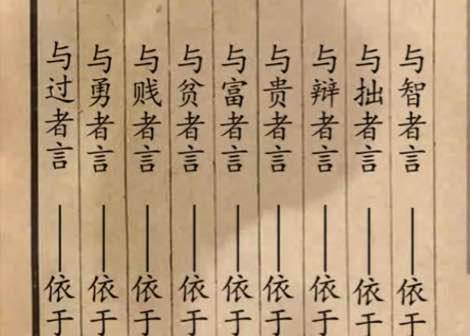 与智者言——依于
与拙者言——依于
与辩者言——依于
与贵者言——依于
与富者言——依于
与贫者言——依于
与贱者言——依于
与勇者言——依于
与过者言——依于